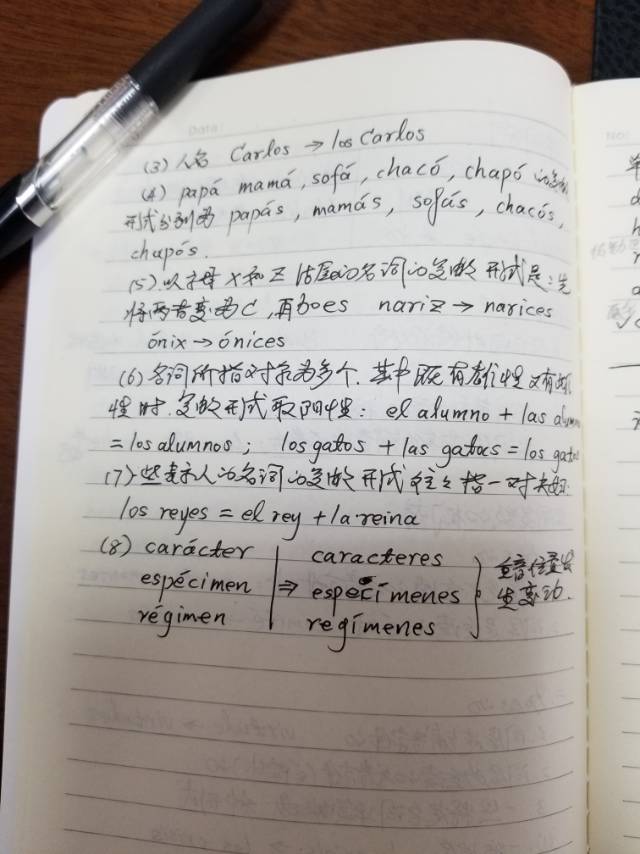 Date
(3) 人名 Carlos → los Carlos
(4) papá mamá, sofá, chacó, chapó 的复数
形式分别为 papás, mamás, sofás, chacós,
chapós.
(5). 以字母 X 和 Z 结尾的名词的复数形式是：先
将两者变为 C, 再加es nariz → narices
ónix → ónices
(6) 名词所指对象为多个, 其中既有雄性又有雌
性时, 复数形式取阳性: el alumno + las alum
= los alumnos ; los gatos + las gatas = los gatos
(7) 些表示人的名词的复数形式往往指一对夫妇:
los reyes = el rey + la reina
(8) carácter | caracteres
espécimen | ⇒ especímenes } 重音位置发
régimen | regímenes 生变动.
No: